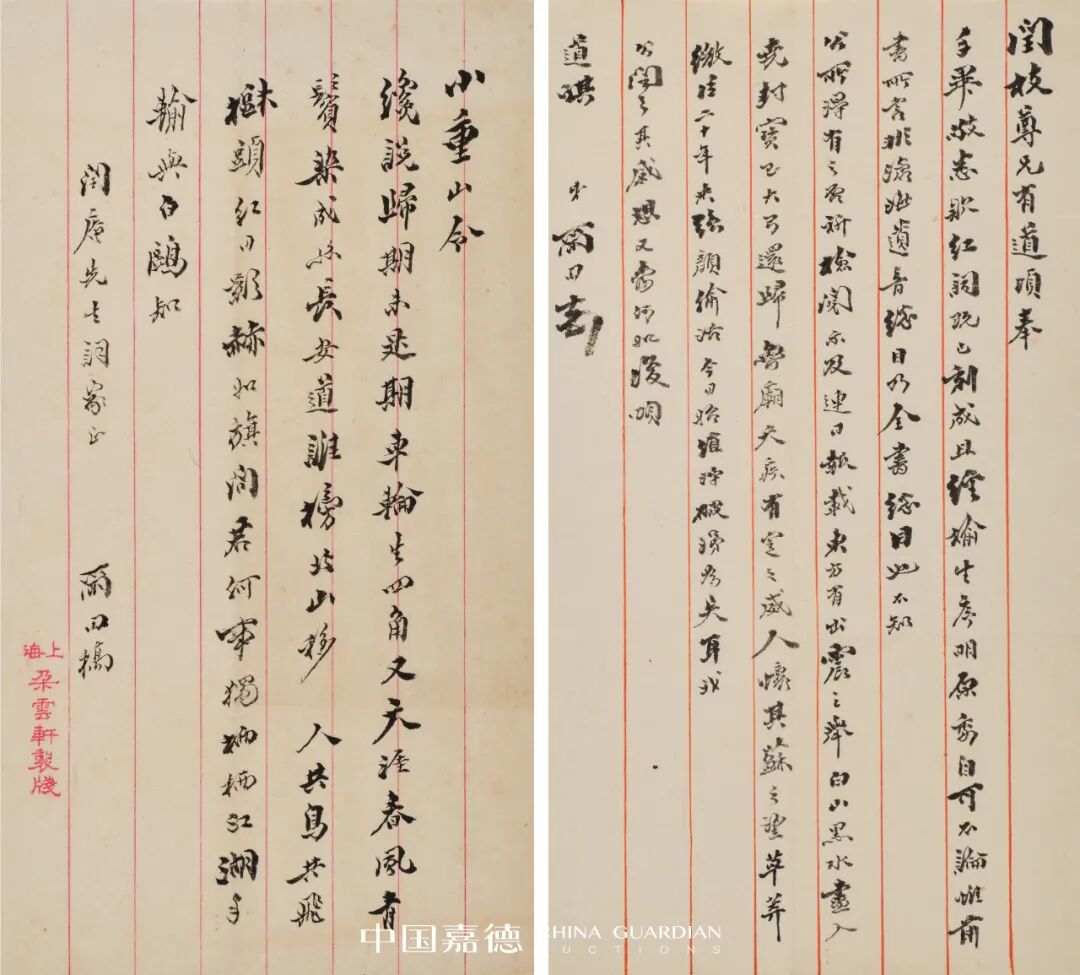 閏枝尊兄有道頃奉
手畢敬悉紅詞既已刻成且經婾生序明原委自可不論惟前
書所言非滄海遺音總目乃全書總目也不知
公所得有之否祈檢閱示及連日報載東方有出震之舉白山黑水盡入
堯封寶玉大弓還歸魯廟天有定之威人懷其蘇之望草莽
微臣二十年來強顏偷活今日始值得破涕為笑耳我
公聞之其感想又當何如復頌
道祺 弟爾田
小重山令
纔說歸期未是期車輪生四角又天涯春風青
鬢染成絲長安道誰榜北山移 人共鳥共飛
樹頭紅日影赫如旗問君何事獨栖栖江湖手
輸與白鷗知
閏庵先生詞家正 爾田稿
上海朵雲軒製牋
中国嘉德 CHINA GUARDIAN AUCTIONS